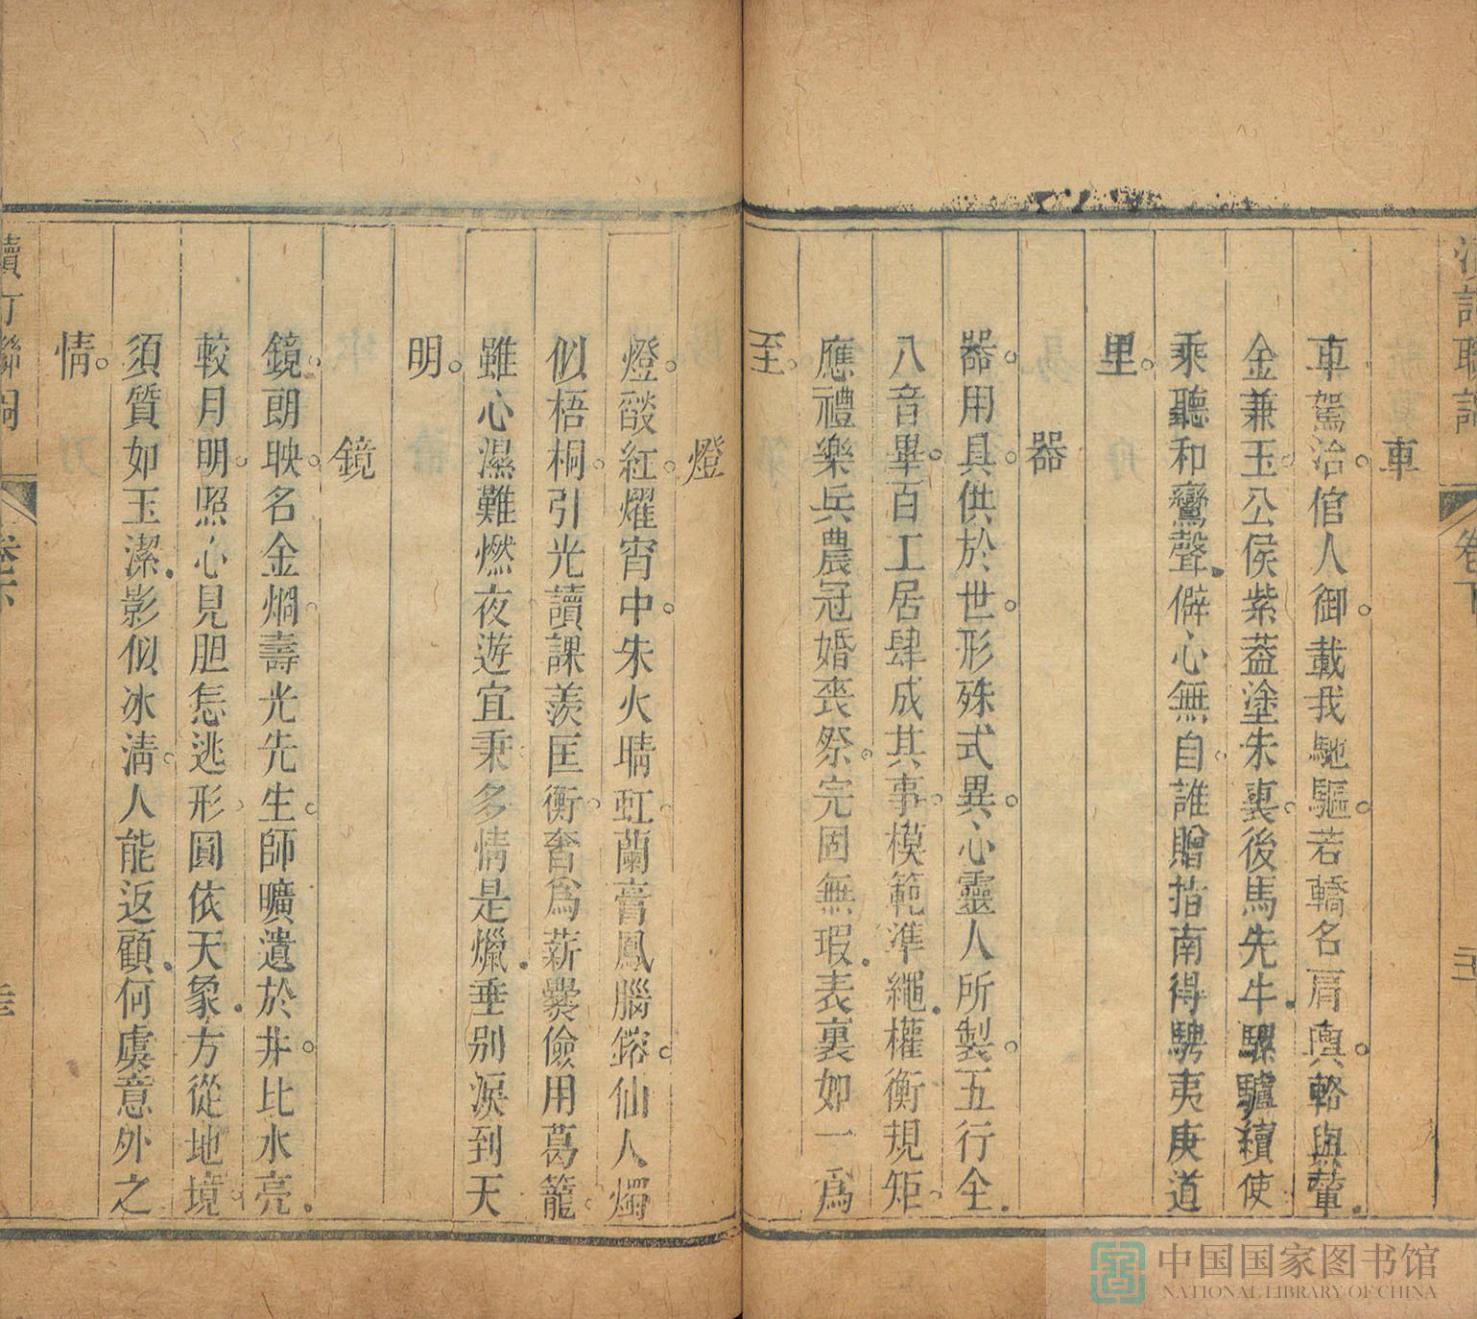 車
車駕治倌人御載我馳驅若轎名肩輿輅與輦
金兼玉公侯紫蓋塗朱裏後馬先牛騾驢續使
乘聽和鸞聲僻心無自誰贈指南得騁夷庚道
里
器
器用具供於世形殊式異心靈人所製五行全
八音畢百工居肆成其事模範準繩權衡規矩
應禮樂兵農冠婚喪祭完固無瑕表裏如一爲
至
燈
燈燄紅燿宵中朱火晴虹蘭膏鳳腦鎔仙人燭
似梧桐引光讀課羨匡衡奢爲薪爨儉用葛籠
雖心濕難燃夜遊宜秉多情是爉垂别淚到天
明
鏡
鏡朗映名金烱壽光先生師曠遺於井比水亮
較月明照心見胆怎逃形圓依天象方從地境
須質如玉潔影似冰淸人能返顧何虞意外之
情
卷下
中国国家图书馆
NATIONAL LIBRARY OF CHINA